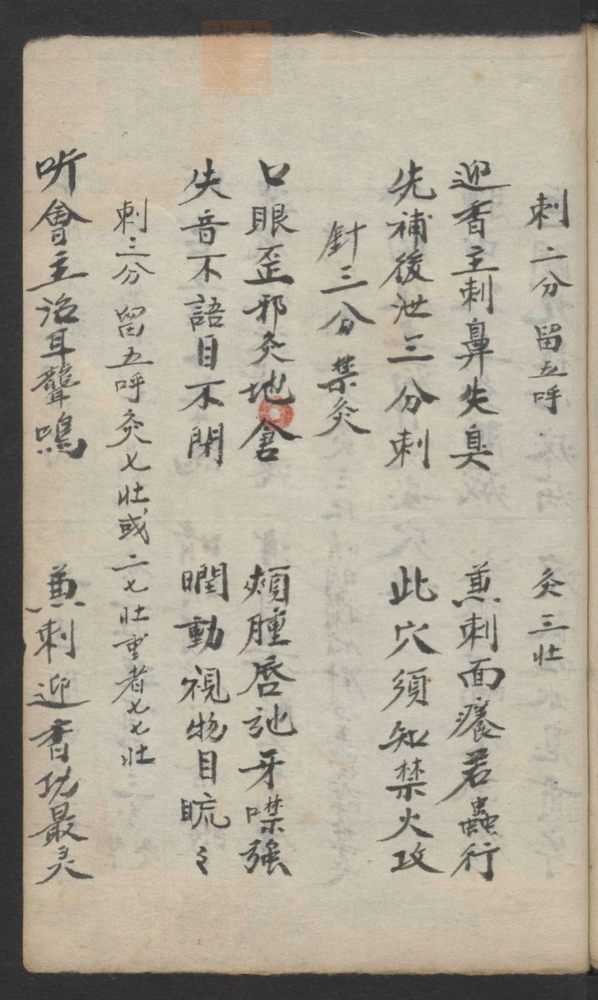 刺二分 留五呼 灸三壮
迎香主刺鼻失臭 兼刺面癢若蟲行
先補後泄三分刺 此穴須知禁火攻
針三分 禁灸
口眼歪邪灸地倉 頰腫唇訑牙噤強
失音不語目不閉 瞤動視物目䀮々
刺三分 留五呼 灸七壮 或二七壮 重者七七壮
听會主治耳聾鳴 兼刺迎香功最灵